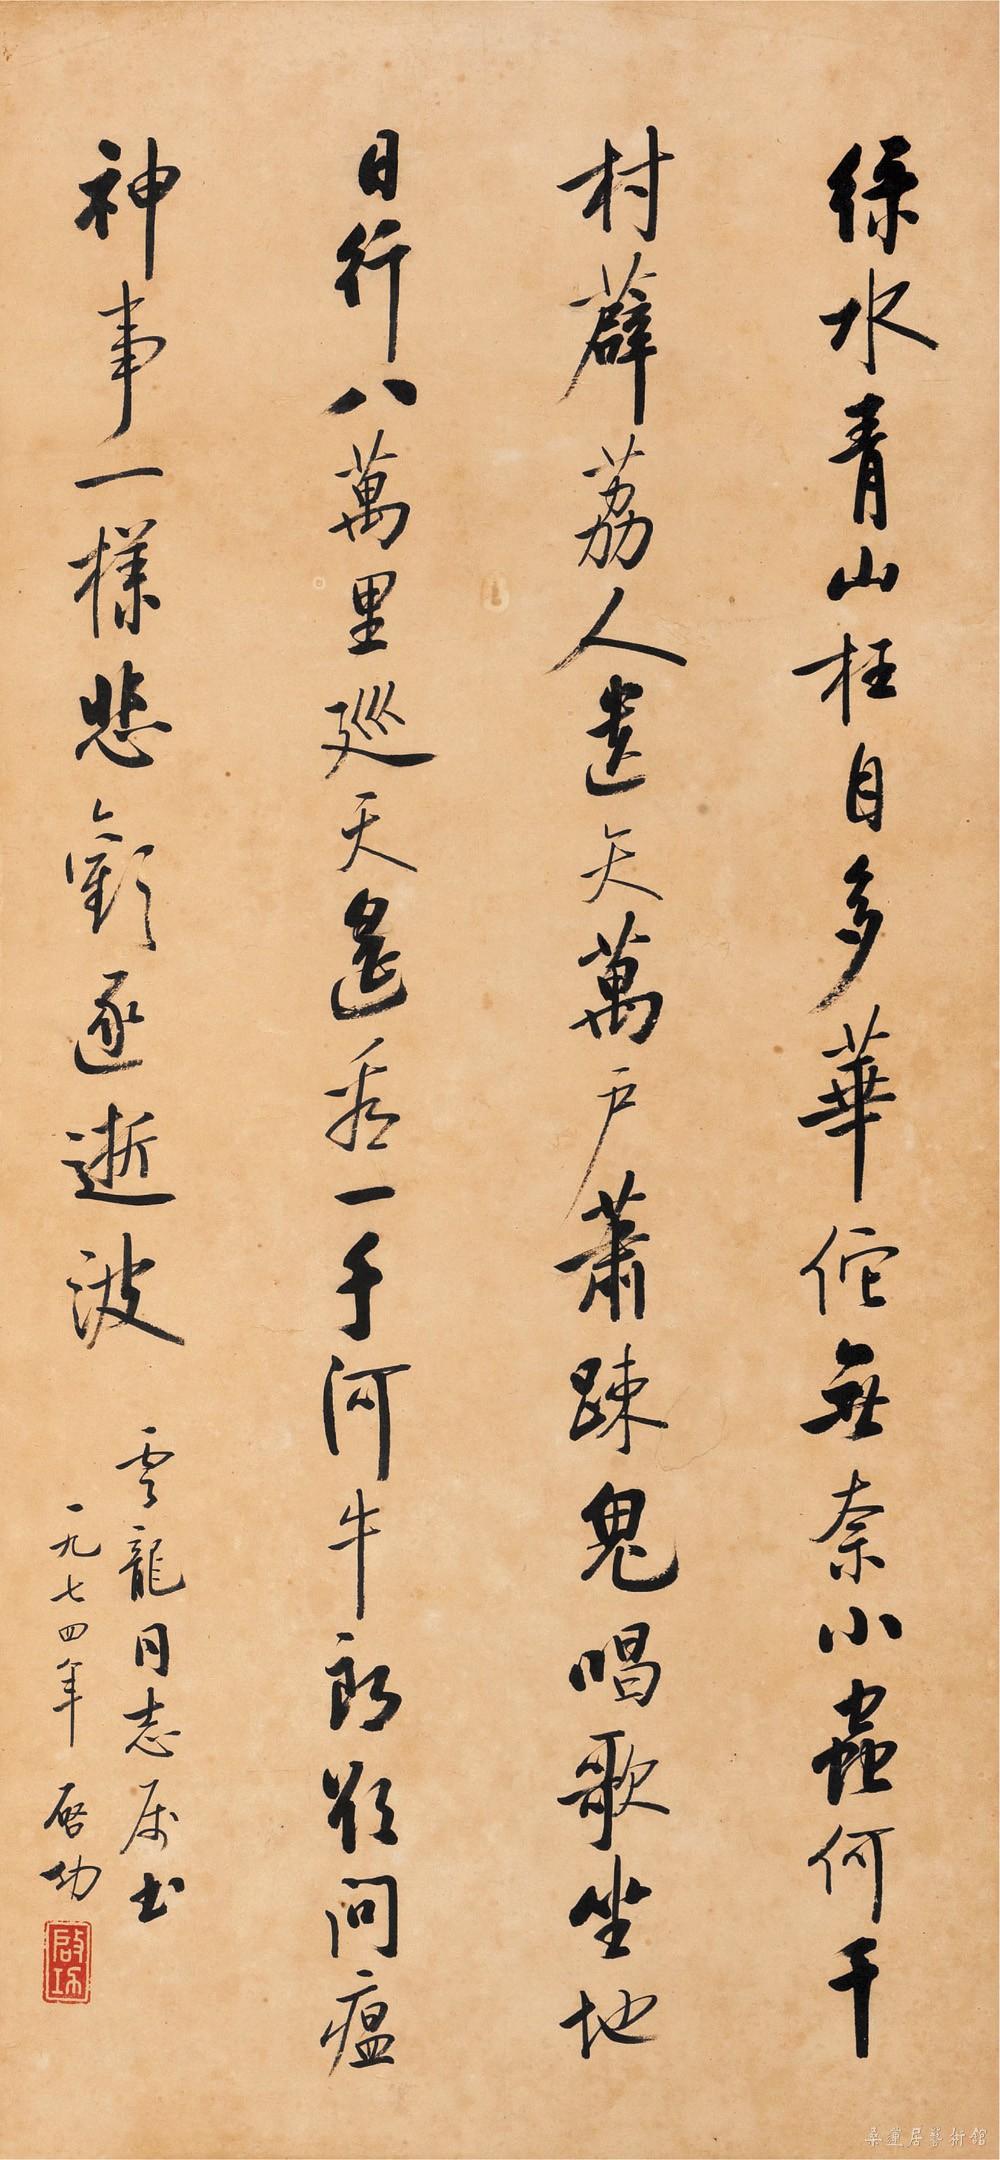 綠水青山枉自多華佗無奈小蟲何千
村薜荔人遺矢萬户蕭踈鬼唱歌坐地
日行八萬里廵天遙看一千河牛郎欲問瘟
神事一樣悲歡逐逝波
雲龍同志属書
一九七四年 启功
啟功
桑蓮居藝術館